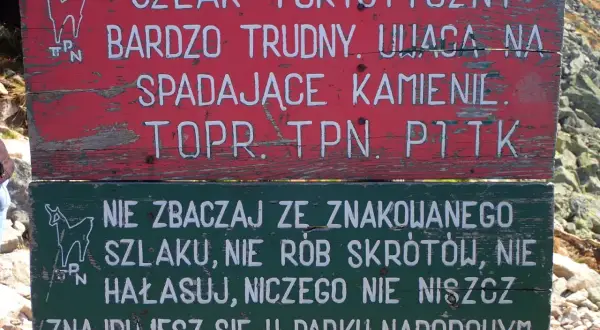 SZLAK TURYSTYCZNY
BARDZO TRUDNY. UWAGA NA
SPADAJĄCE KAMIENIE.
TOPR. TPN. PTTK
TPN
NIE ZBACZAJ ZE ZNAKOWANEGO
SZLAKU, NIE RÓB SKRÓTÓW, NIE
HAŁASUJ, NICZEGO NIE NISZCZ
ZNAJDUJESZ SIĘ W PARKU NARODOWYM
TPN